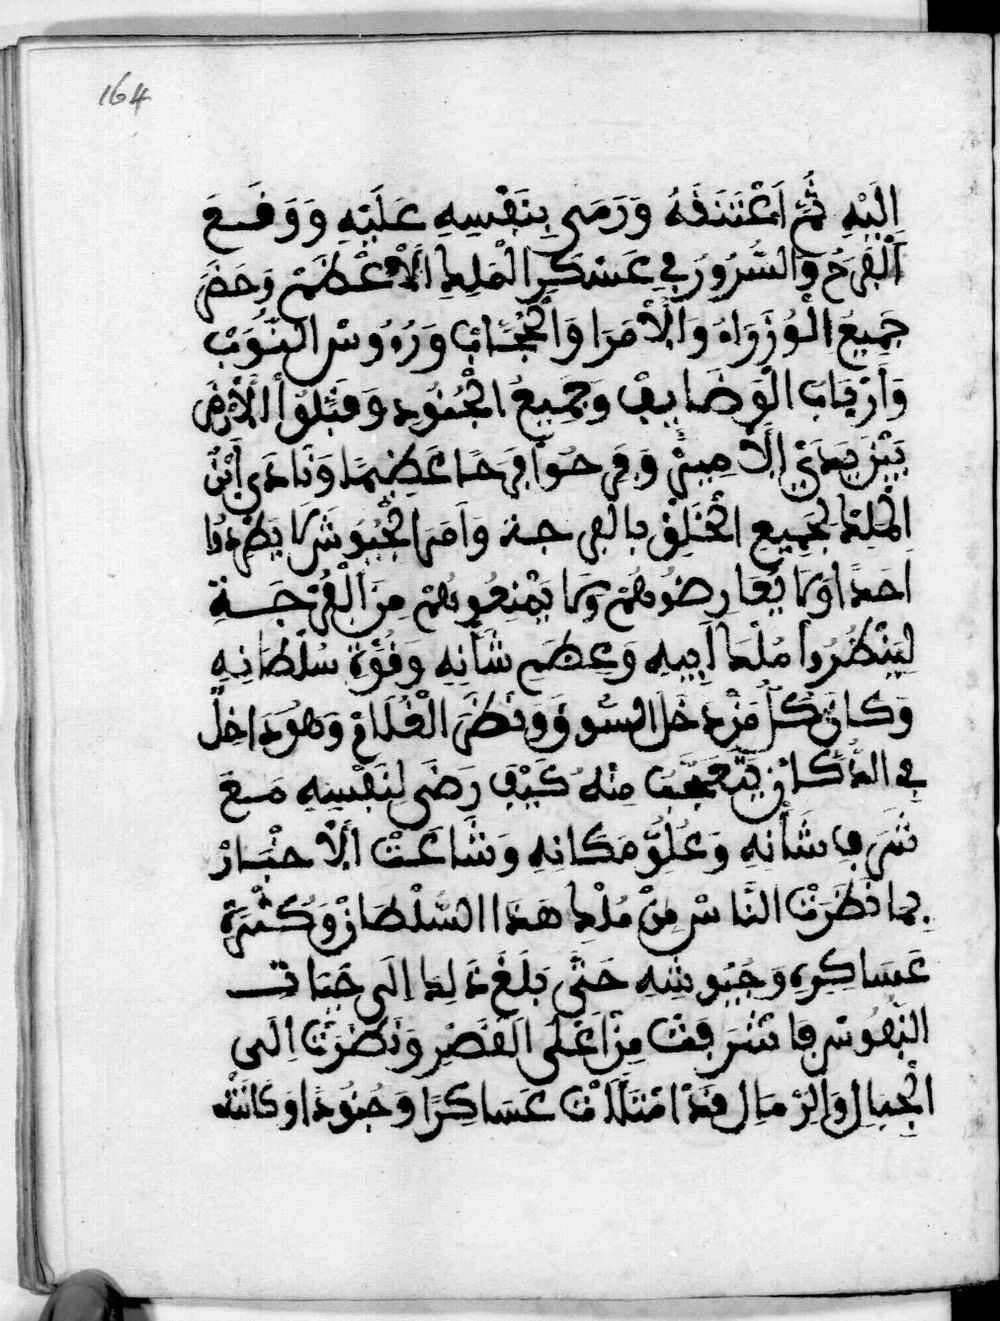 164
اِلَيْهِ ثُمَّ اَعْتَنَقَهُ وَرَمَى بِنَفْسِهِ عَلَيْهِ وَوَقَعَ
اَلْفَرَحُ وَالسُّرُورُ فِي عَسْكَرِ الْمَلِكِ الْأَعْظَمْ وَحَضَرَ
جَمِيعُ الْوُزَرَاءَ وَالْأُمَرَا وَالْحُجَّابْ وَرُءُوسْ النُّوَبْ
وَأَرْبَابْ الْوَضَايِفْ وَجَمِيعُ الْجُنُودِ وَقَبَّلُوا الْأَرْضَ
بَيْنَ يَدَيْ الْأَمِيرْ وَفَرِحُوا فَرَحًا عَظِيمًا وَنَادَى اَبْنُ
الْمَلِكْ لِجَمِيعِ الْخَلِقْ بِالْفُرجة وَاَمَرَ الْجُيُوشَ لَا يَطْرُدُوا
اَحَدًا وَلَا يُعَارِضُوهُمْ وَلَا يَمْنِعُوهُمْ مِنَ الْفُرْجَــةِ
لِيَنْظُرُوا مُلْكَ اَبِيهِ وَعِظَمِ شَأْنِهِ وَقُوَّةِ سُلْطَانِهِ
وَكَانَ كُلُّ مَنْ دَخَلَ السُّوقْ وَنَظَرَ الْغُلَامْ وَهُوَ دَاخِلٌ
فِي الدُّكَّانْ يَتَعَجَّبْ مِنْهُ كَيْفَ رَضَى لِنَفْسِهِ مَعَ
شَرَفِ شَأْنِهِ وَعُلُوِّ مَكَانِهِ وَشَاعَتْ الْأَخْبَارْ
بِمَا نَظَرَتْ النَّاسْ مِنْ مُلْكِ هَذَا السُّلْطَانْ وَكُثْرَةِ
عَسَاكِرِهِ وَجُيُوشِهِ حَتَّى بَلَغَ ذَلِكَ اِلَى حَيَات
النُّفُوسْ فَاشْرَفَتْ مِنْ اَعْلَى الْقَصْرِ وَنَظَرَتْ اِلَى
الْجِبَالِ وَالرِّمَالِ قَدْ اِمْتَلَأَتْ عَسَاكِرًا وَجُنُودًا وَكَانَتْ